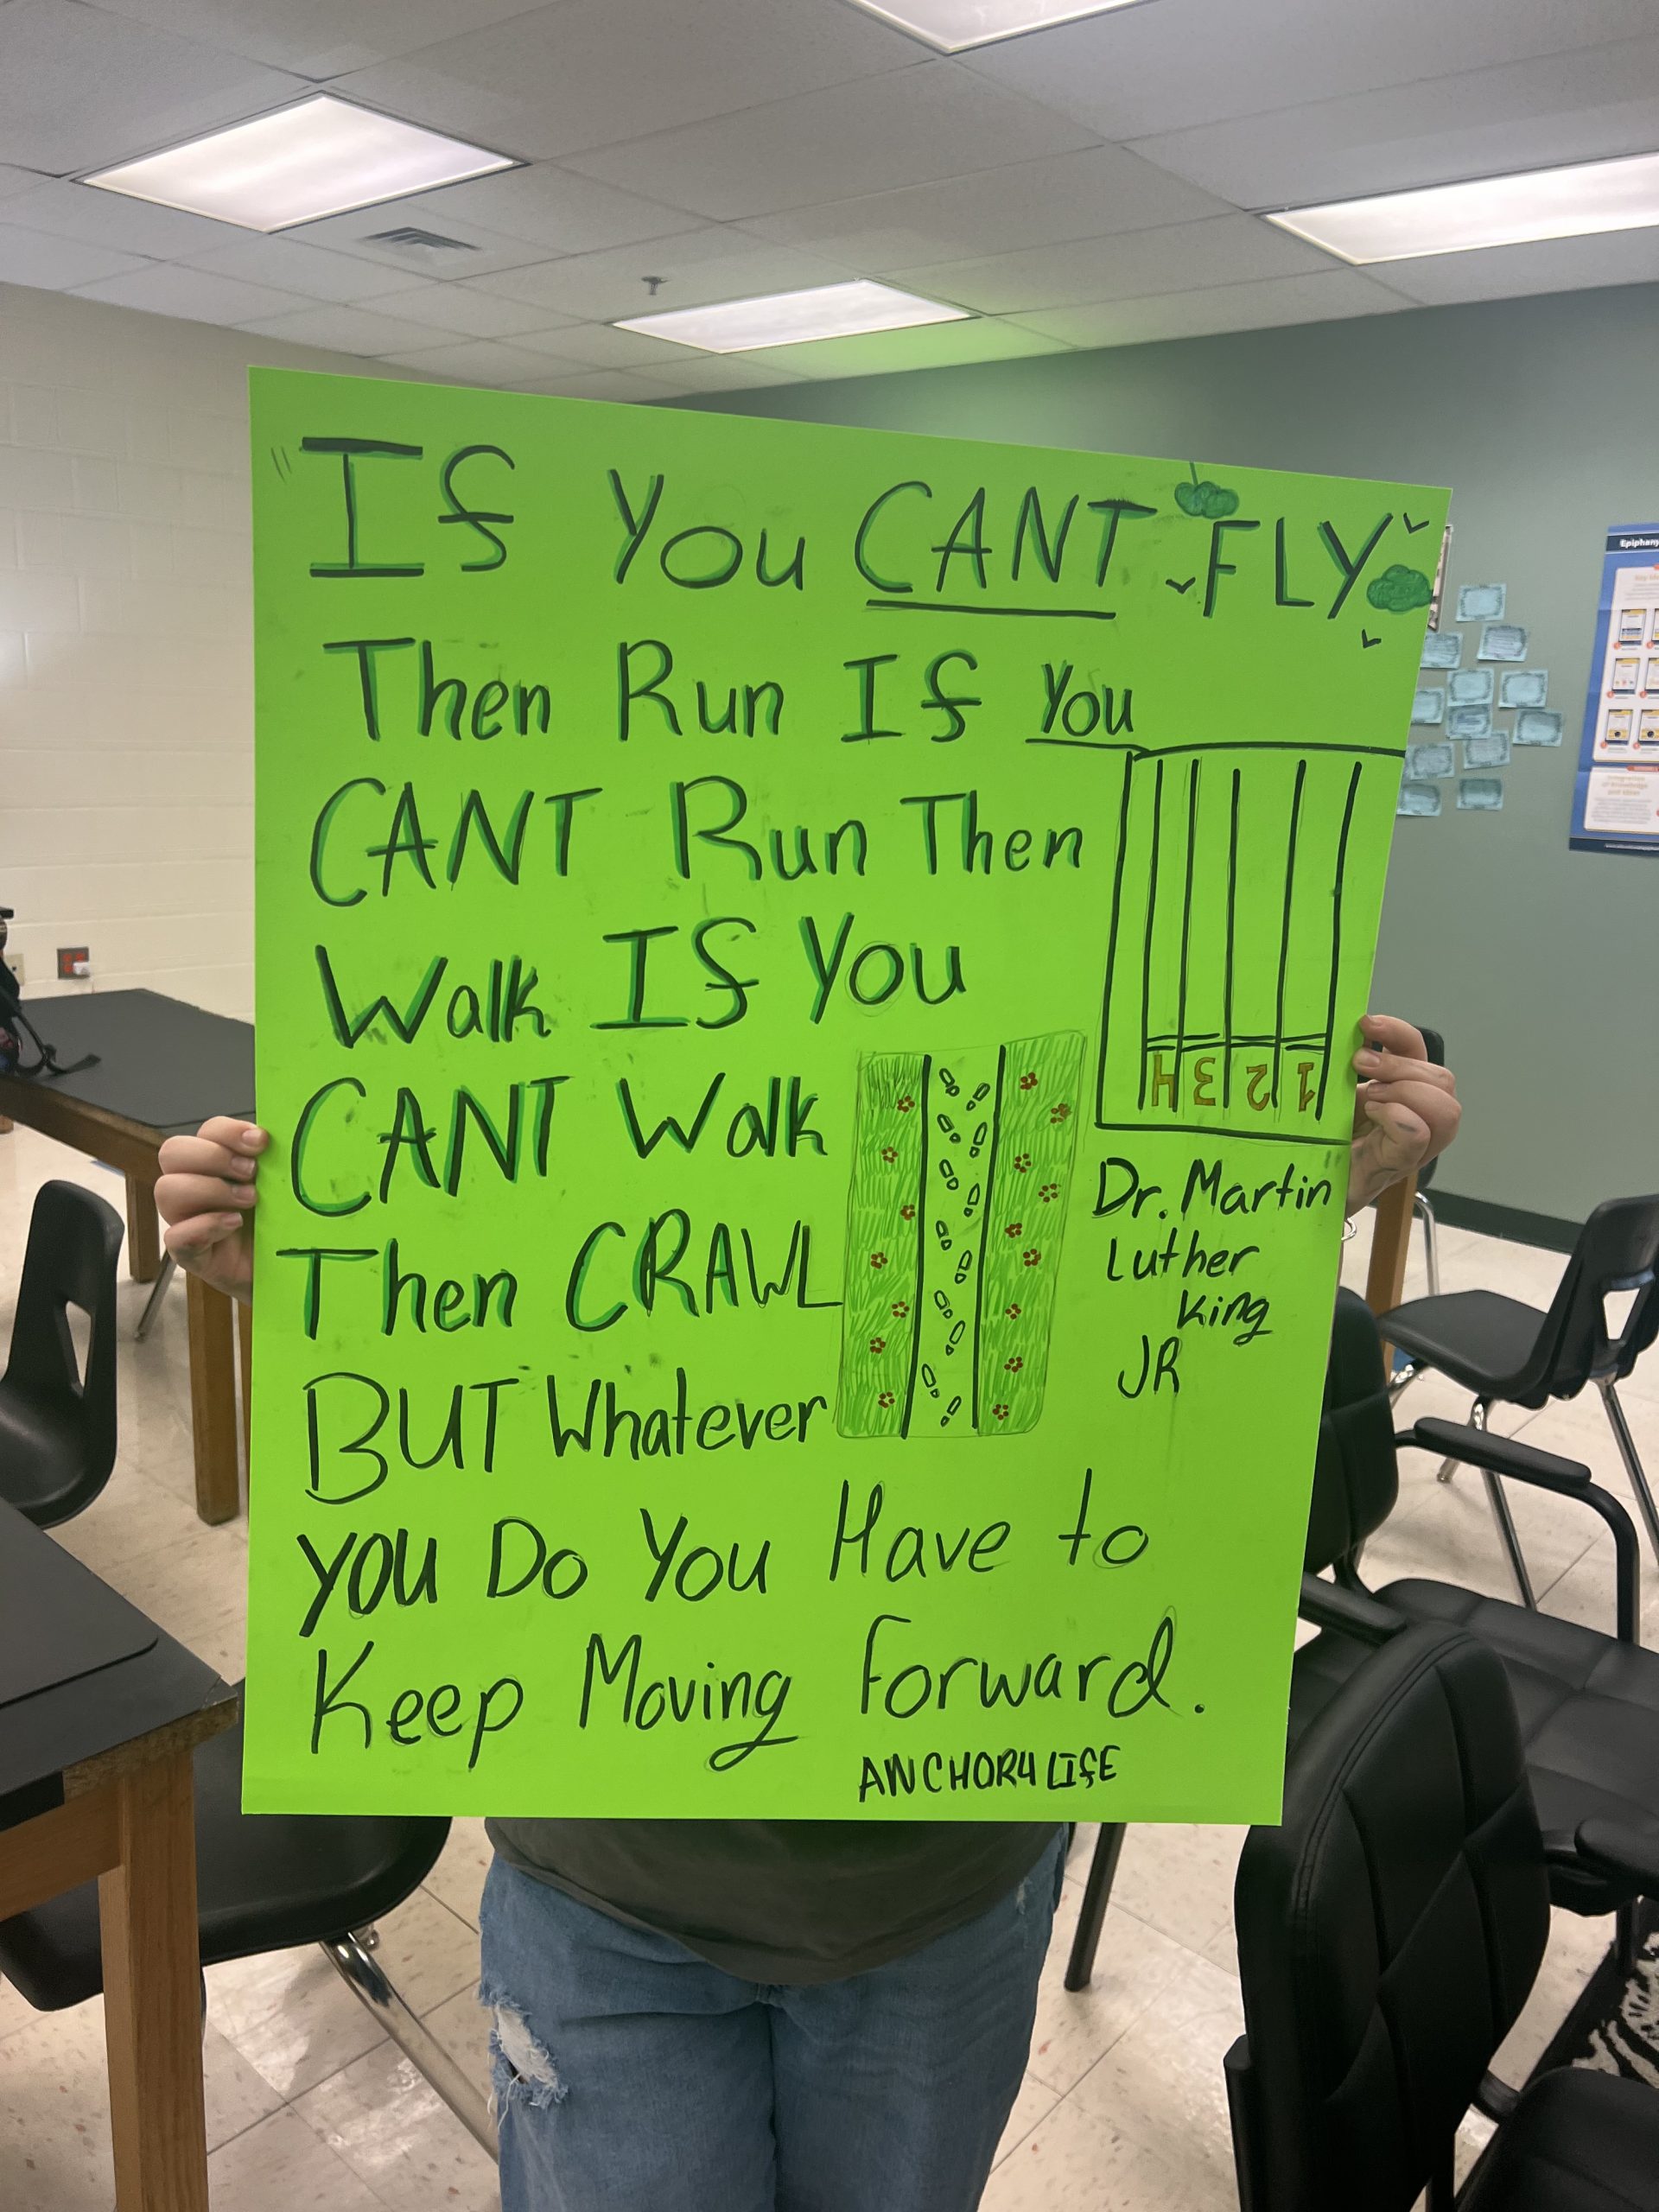 "If You CANT FLY
Then Run If You
CANT Run Then
Walk If You
CANT Walk
Then CRAWL
BUT Whatever
you Do You Have to
Keep Moving Forward.
4 3 2 1
Dr. Martin
Luther
King
JR
ANCHOR4LIFE
Epiphany